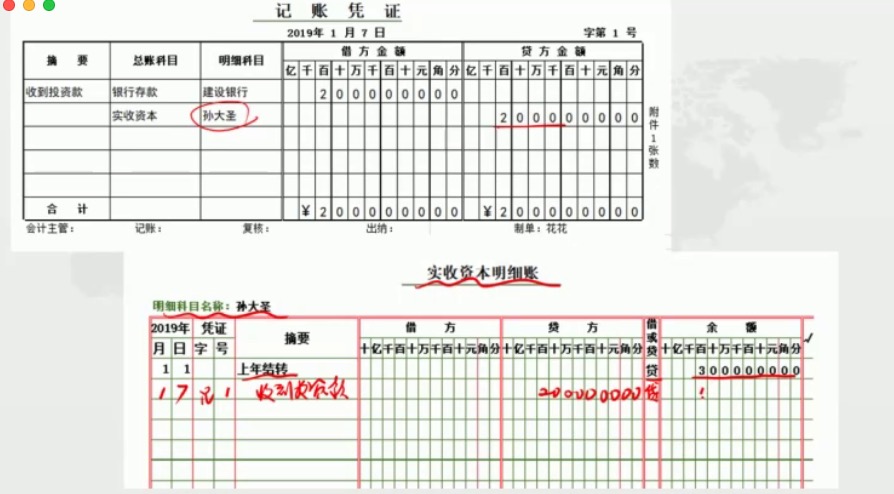 记 账 凭 证
2019年 1 月 7 日 字第 1 号
摘 要 总账科目 明细科目 借 方 金 额 贷 方 金 额
亿 千 百 十 万 千 百 十 元 角 分 亿 千 百 十 万 千 百 十 元 角 分
收到投资款 银行存款 建设银行 2 0 0 0 0 0 0 0 0
实收资本 孙大圣 2 0 0 0 0 0 0 0 0
附件1张数
合 计 ¥ 2 0 0 0 0 0 0 0 0 ¥ 2 0 0 0 0 0 0 0 0
会计主管: 记账: 复核: 出纳: 制单: 花花
实收资本明细账
明细科目名称: 孙大圣
2019年 凭证 摘要 借 方 贷 方 借或贷 余 额
月 日 字 号 十亿千百十万千百十元角分 十亿千百十万千百十元角分 十亿千百十万千百十元角分
1 1 上年结转 贷 3 0 0 0 0 0 0 0 0
1 7 记 1 收到投资款 2 0 0 0 0 0 0 0 0 贷